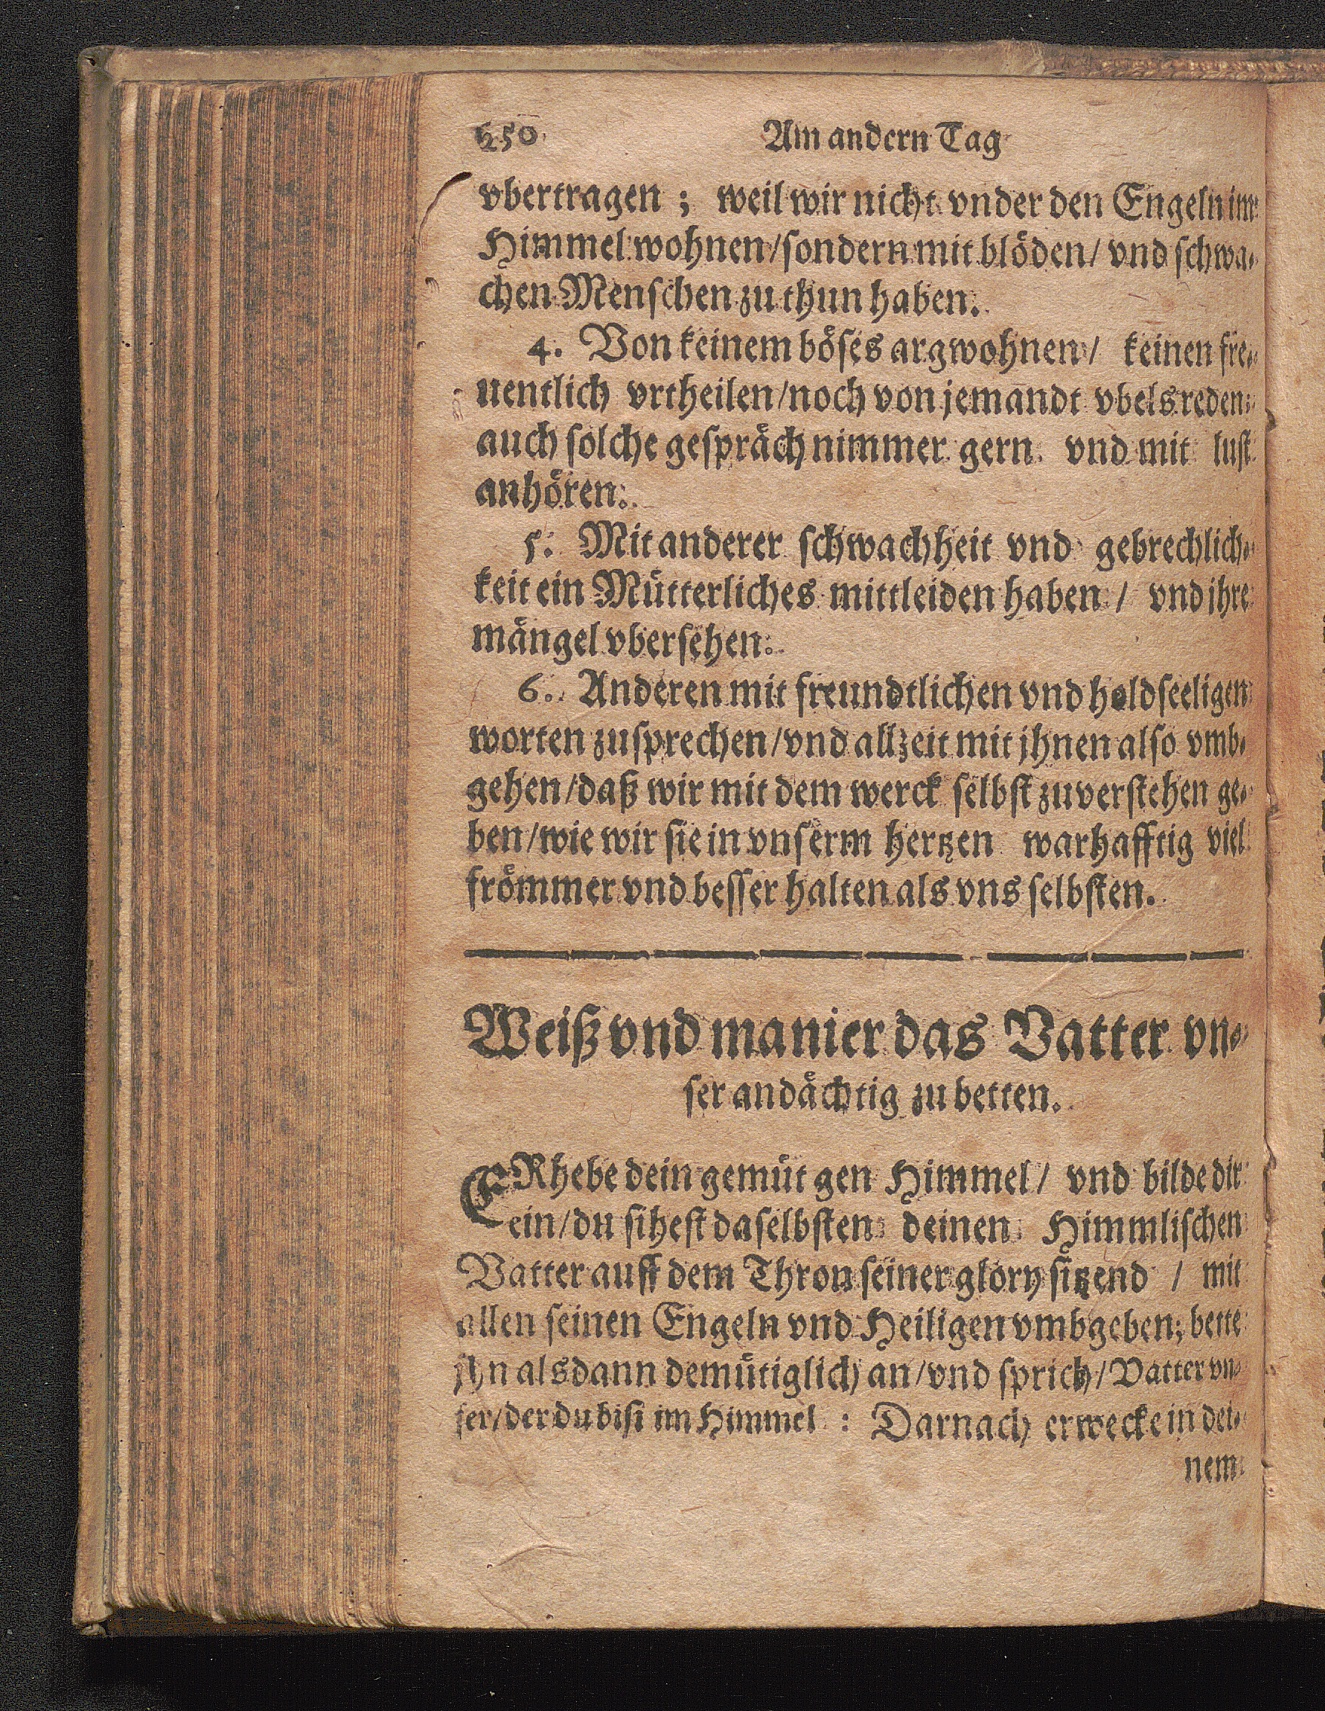 650 Am andern Tag
vbertragen; weil wir nicht vnder den Engeln im
Himmel wohnen/sondern mit blöden/ vnd schwa-
chen Menschen zu thun haben.
4. Von keinem böses argwohnen/ keinen fre-
uentlich vrtheilen/noch von jemandt vbels reden:
auch solche gespräch nimmer gern vnd mit lust
anhören.
5. Mit anderer schwachheit vnd gebrechlich-
keit ein Mütterliches mittleiden haben / vnd jhre
mängel vbersehen.
6. Anderen mit freundtlichen vnd holdseeligen
worten zusprechen/vnd allzeit mit jhnen also vmb-
gehen/daß wir mit dem werck selbst zuverstehen ge-
ben/wie wir sie in vnserm hertzen warhafftig viel
frömmer vnd besser halten als vns selbsten.
Weiß vnd manier das Vatter vn-
ser andächtig zu betten.
ERhebe dein gemüt gen Himmel/ vnd bilde dir
ein/du sihest daselbsten deinen Himmlischen
Vatter auff dem Thron seiner glory sitzend / mit
allen seinen Engeln vnd Heiligen vmbgeben; bette
jhn alsdann demütiglich an/vnd sprich/Vatter vn-
ser/der du bist im Himmel : Darnach erwecke in dei-
nem